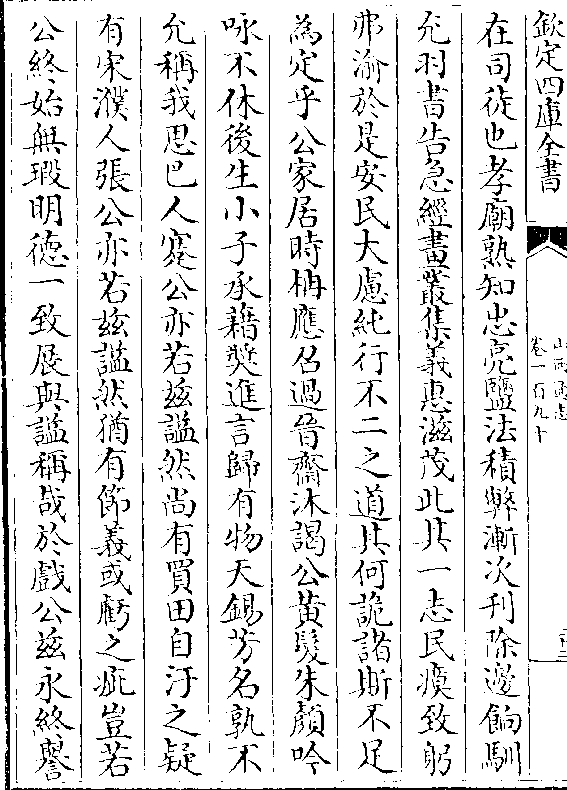 欽定四庫全書
山西通志
卷一百九十
在司徒也孝廟熟知忠亮鹽法積弊漸次刋除邊餉馴
充羽書告急經書叢集義惠滋茂此其一志民瘼致躬
弗渝於是安民大慮純行不二之道其何詭諸斯不足
為定乎公家居時柟應召過晉齋沐謁公黄髮朱顔吟
咏不休後生小子承藉奬進言歸有物天錫芳名孰不
允稱我思巴人蹇公亦若兹諡然尚有買田自汙之疑
有宋濮人張公亦若兹諡然猶有節義或虧之疵豈若
公終始無瑕明德一致展與諡稱哉於戲公兹永終譽